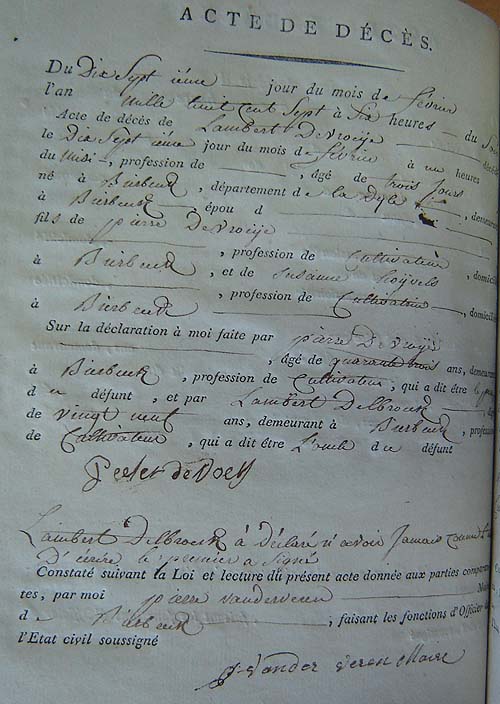 ACTE DE DÉCÈS.
Du Dix Sept ième jour du mois de février
l'an mille huit cent Sept à Six heures du Soir
Acte de décès de Lambert De vroije
le Dix Sept ième jour du mois de février à une heures
du Midi, profession de , âgé de trois jours
né à Bierbeeck, département de la Dyle, demeurant
à Bierbeeck, épou d
fils de pierre De vroije
, profession de Cultivateur, domicil
à Bierbeeck, et de Susanne
, profession de Cultivateur, domicil
à Bierbeeck
Sur la déclaration à moi faite par pierre De vroije
, âgé de quarante trois ans, demeurant
à Bierbeeck, profession de Cultivateur, qui a dit être le
d u défunt, et par Lambert Delbroeck
de vingt neuf ans, demeurant à Bierbeeck, profes
de Cultivateur, qui a dit être L'oncle du défunt
Lambert Delbroeck à Déclaré n'avoir Jamais
D'écrire le premier a signé
Constaté suivant la Loi et lecture du présent acte donnée aux parties comparan
tes, par moi pierre vanderveren
de Bierbeeck, faisant les fonctions d'Officier
l'Etat civil soussigné
p. vander veren Maire